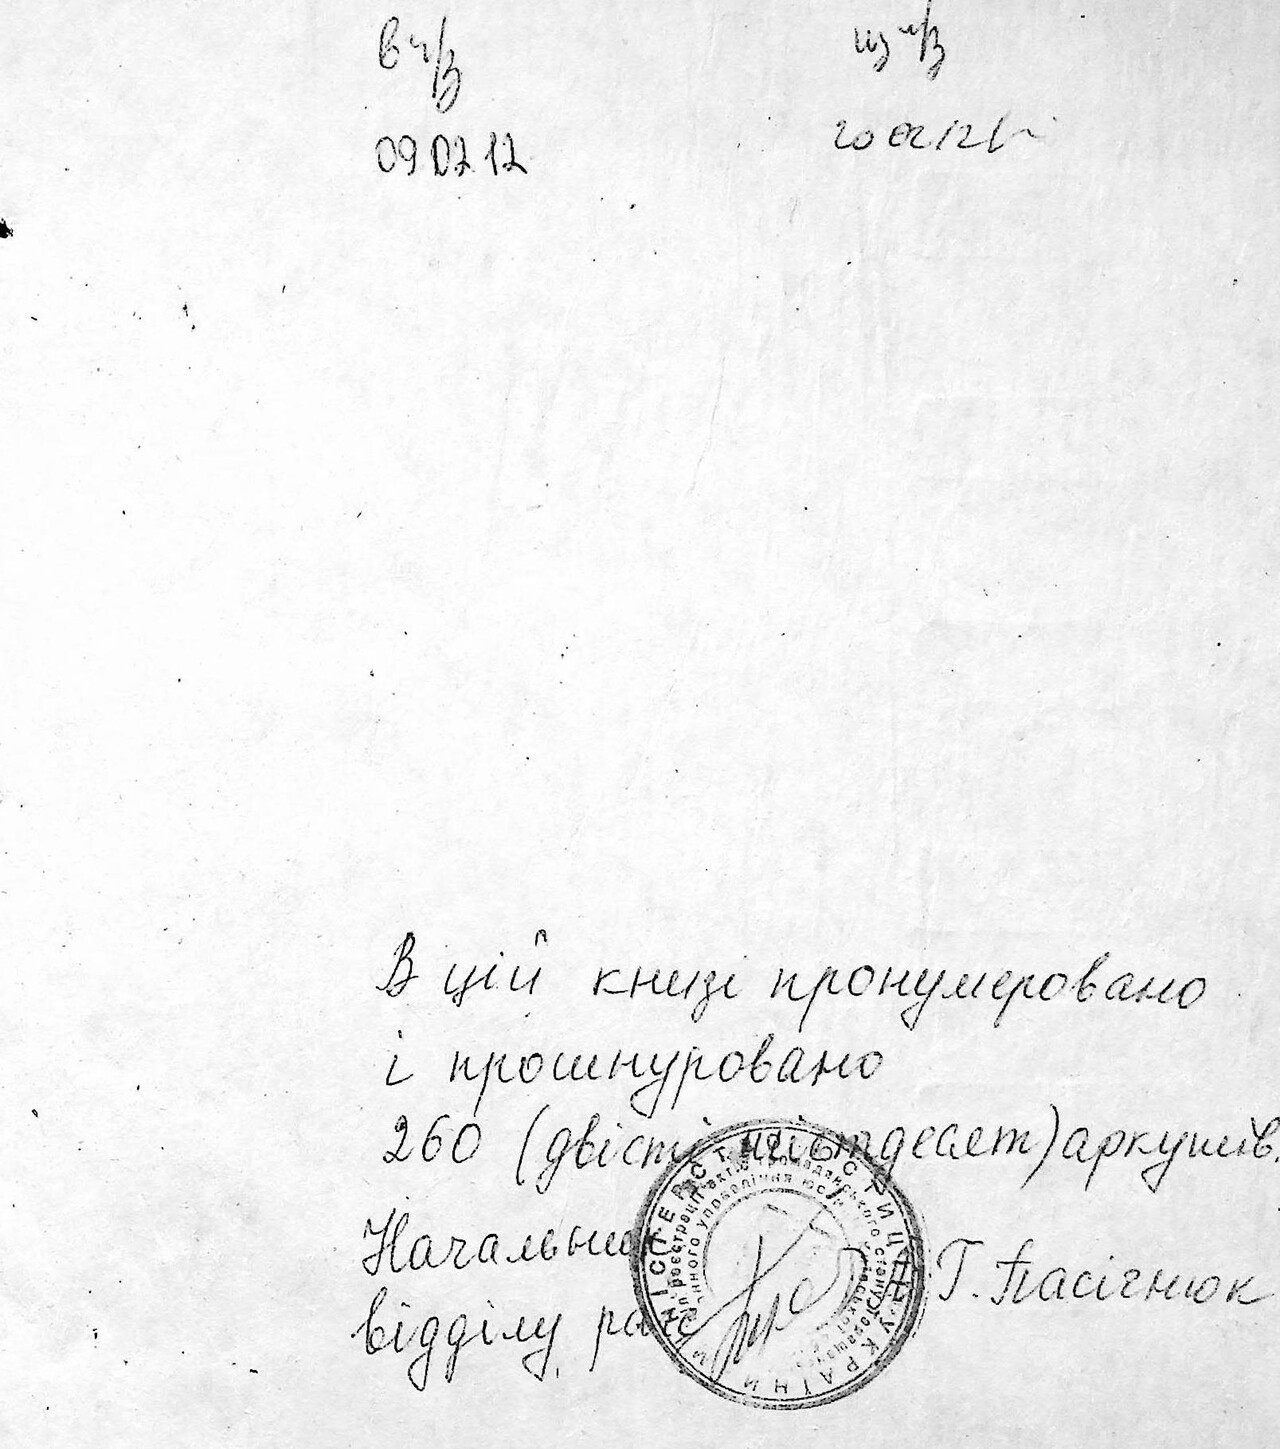 в ч/з
из ч/з
09 02 12
20 02 12
В цій книзі пронумеровано
і прошнуровано
260 (двісті шістдесят) аркушів.
Начальник
відділу рацс
Г. Пасічнюк
МІНІСТЕРСТВО ЮСТИЦІЇ УКРАЇНИ
реєстрації актів громадянського стану
управління юстиції